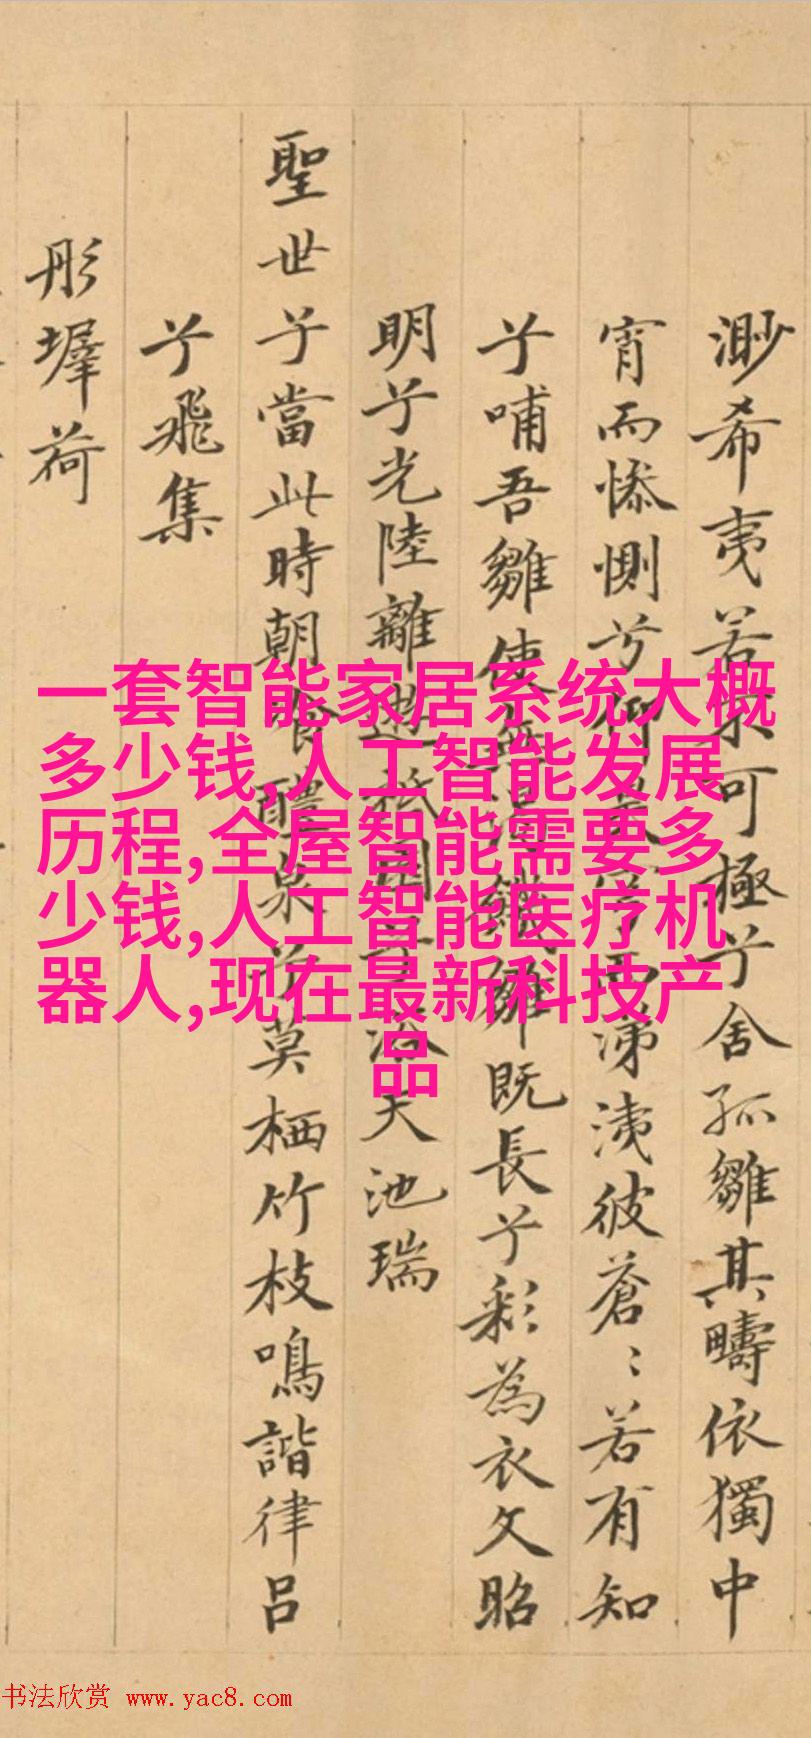 渺希夷若不可極兮舍孤雛其疇依獨中
宵而慘惻兮仰而涕洟彼蒼〻若有知
兮哺吾雛使雛既長兮彩為衣文昭
明兮光陸離遊園兮浴天池瑞
聖世兮當此時朝飡醴泉兮莫栖竹枝鳴諧律呂
兮飛集
彤墀荷
一套智能家居系统大概
多少钱,人工智能发展
历程,全屋智能需要多
少钱,人工智能医疗机
器人,现在最新科技产
品
书法欣赏 www.yac8.com